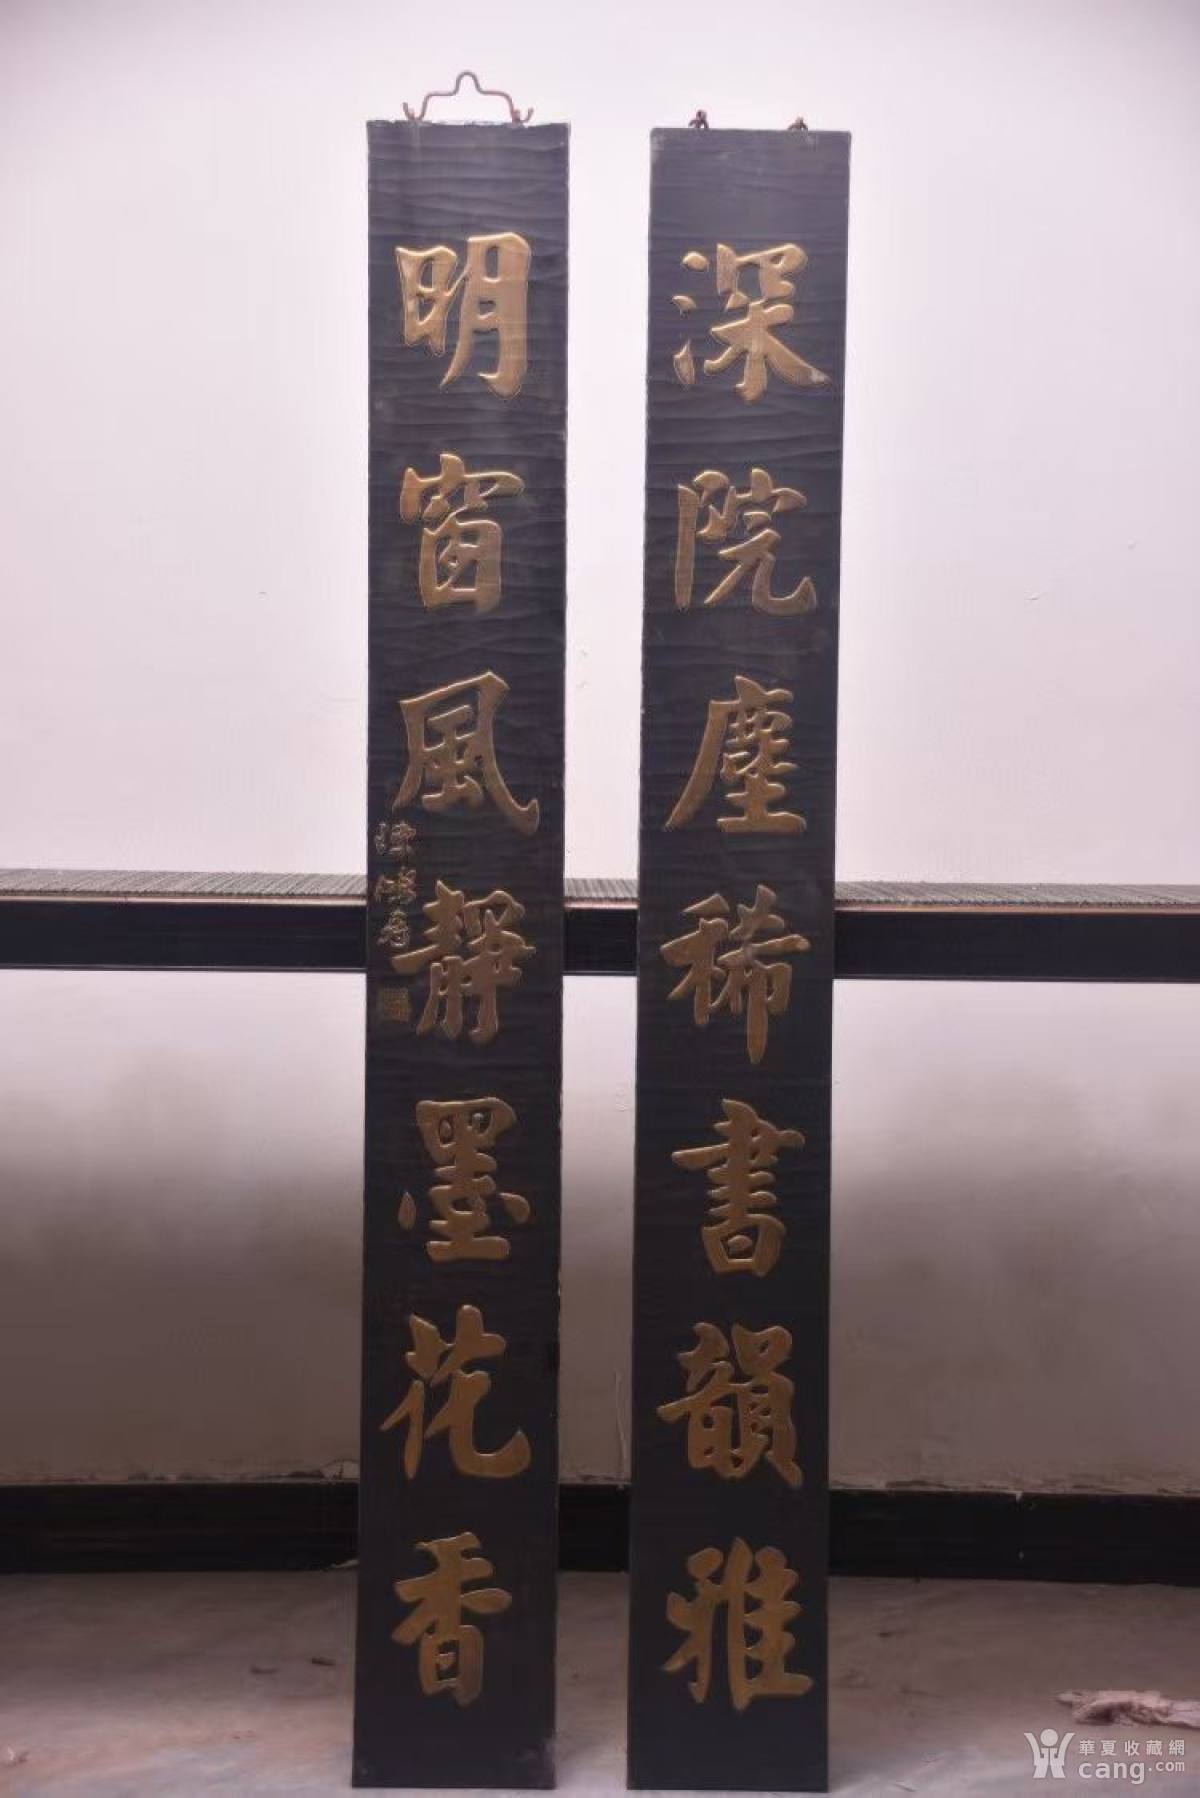 深院塵稀書韻雅
明窗風靜墨花香
陳鴻壽
華夏收藏網
cang.com